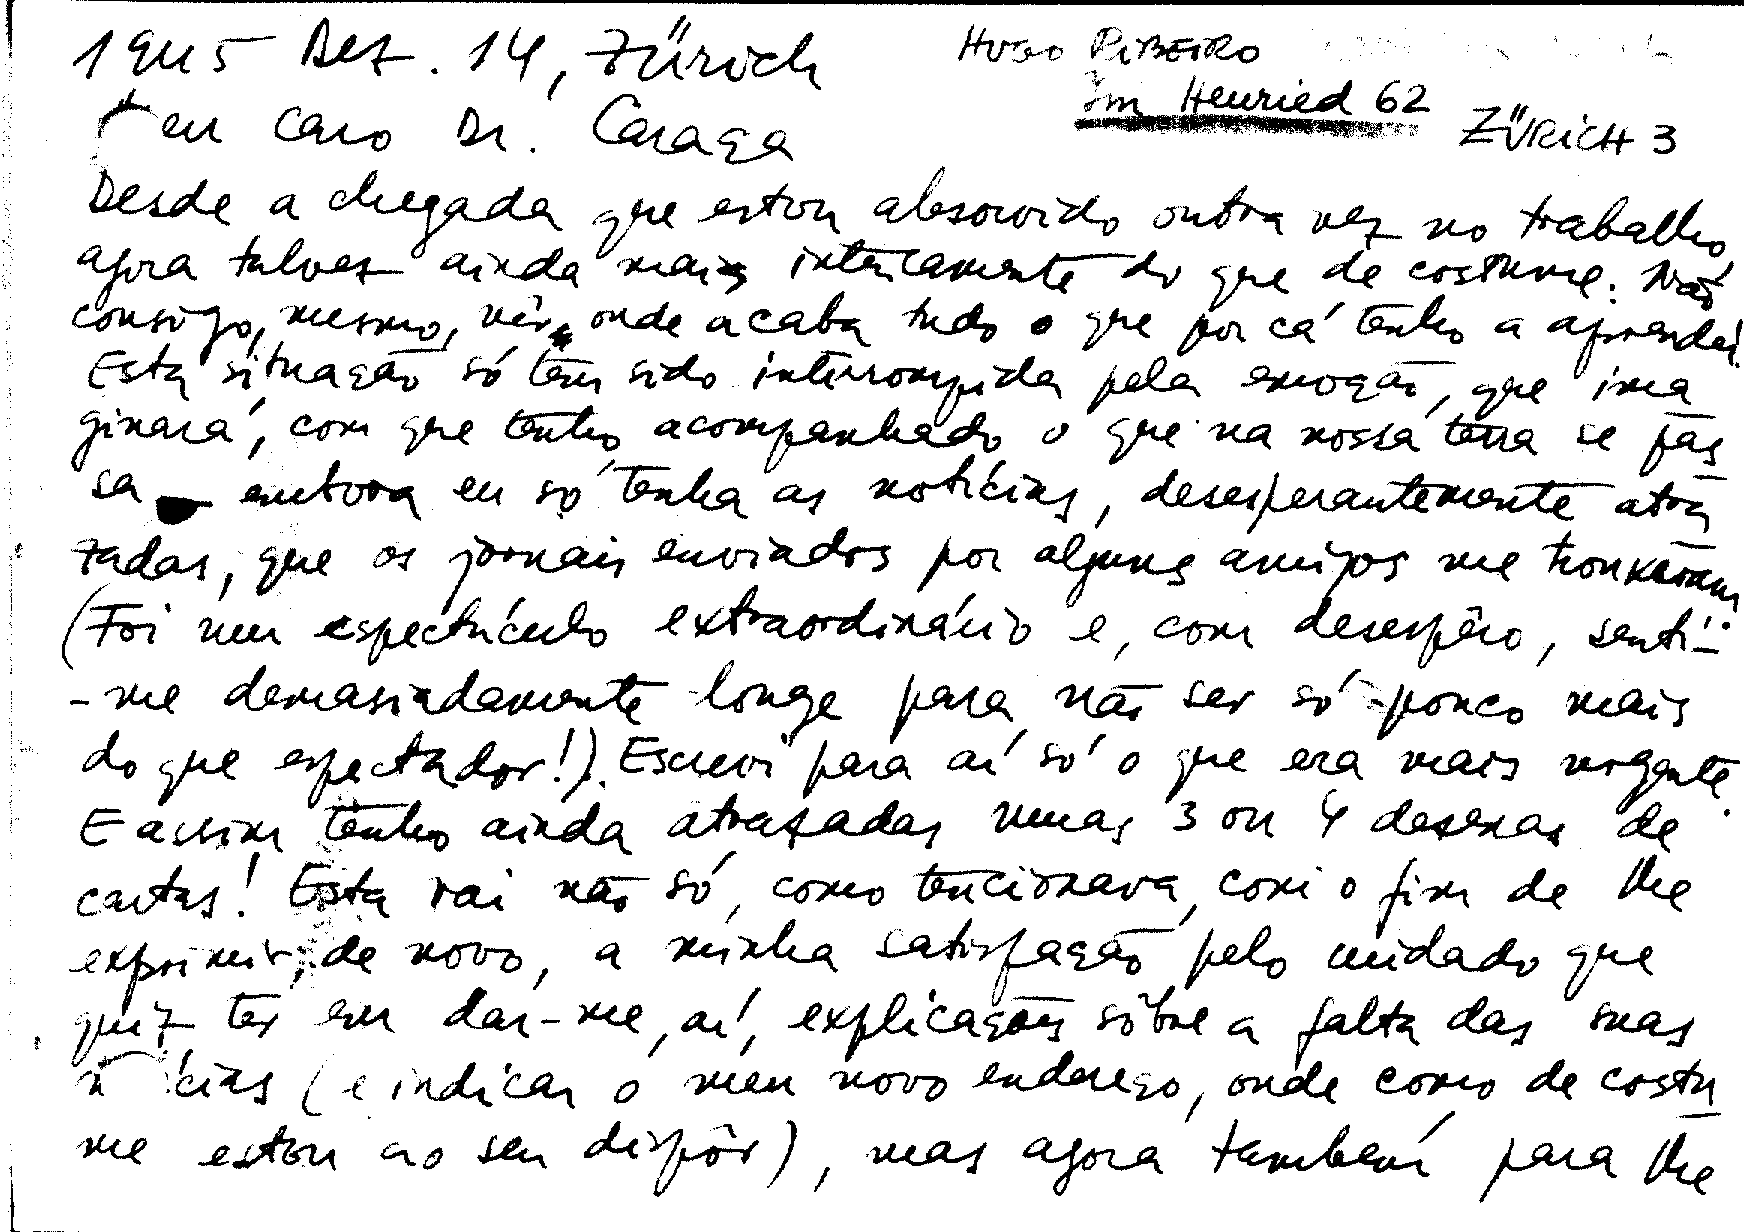 1945 Dez. 14, Zürich
HUGO RIBEIRO
Im Heuried 62
ZÜRICH 3
Meu caro Dr. Caraça
Desde a chegada que estou absorvido outra vez no trabalho,
agora talvez ainda mais inteiramente do que de costume. Não
consigo, mesmo, vêr onde acaba tudo o que por cá tenho a aprender.
Esta situação só tem sido interrompida pela emoção, que ima
ginará, com que tenho acompanhado o que na nossa terra se pas
sa embora eu só tenha as notícias, desesperantemente atra
zadas, que os jornais enviados por alguns amigos me trouxeram
(Foi um espectáculo extraordinário e, com desespêro, senti-
-me demasiadamente longe para não ser só pouco mais
do que espectador!). Escrevi para aí só o que era mais urgente.
E assim tenho ainda atrazadas umas 3 ou 4 dezenas de
cartas! Esta vai não só, como tencionava, com o fim de lhe
exprimir, de novo, a minha satisfação pelo cuidado que
quiz ter em dar-me, aí, explicações sôbre a falta das suas
notícias (e indicar o meu novo endereço, onde como de costu
me estou ao seu dispôr), mas agora também para lhe